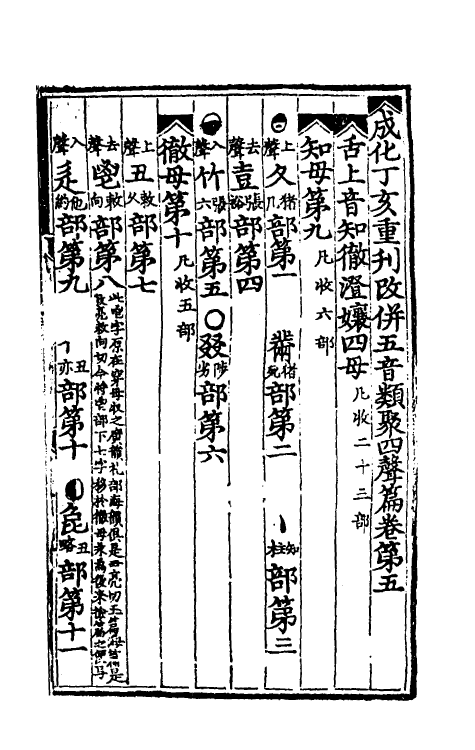 成化丁亥重刊改併五音類聚四聲篇卷第五
舌上音知徹澄孃四母凡收二十三部
知母第九凡收六部
上聲夂猪几部第一 黹猪死部第二 丶知柱部第三
去聲壴張裕部第四
入聲竹張六部第五○叕陟劣部第六
徹母第十凡收五部
上聲丑敕久部第七
去聲鬯敕向部第八此鬯字原在穿母收之廣韻禮部
入聲辵他約部第九 亍丑亦部第十 㲋丑略部第十一